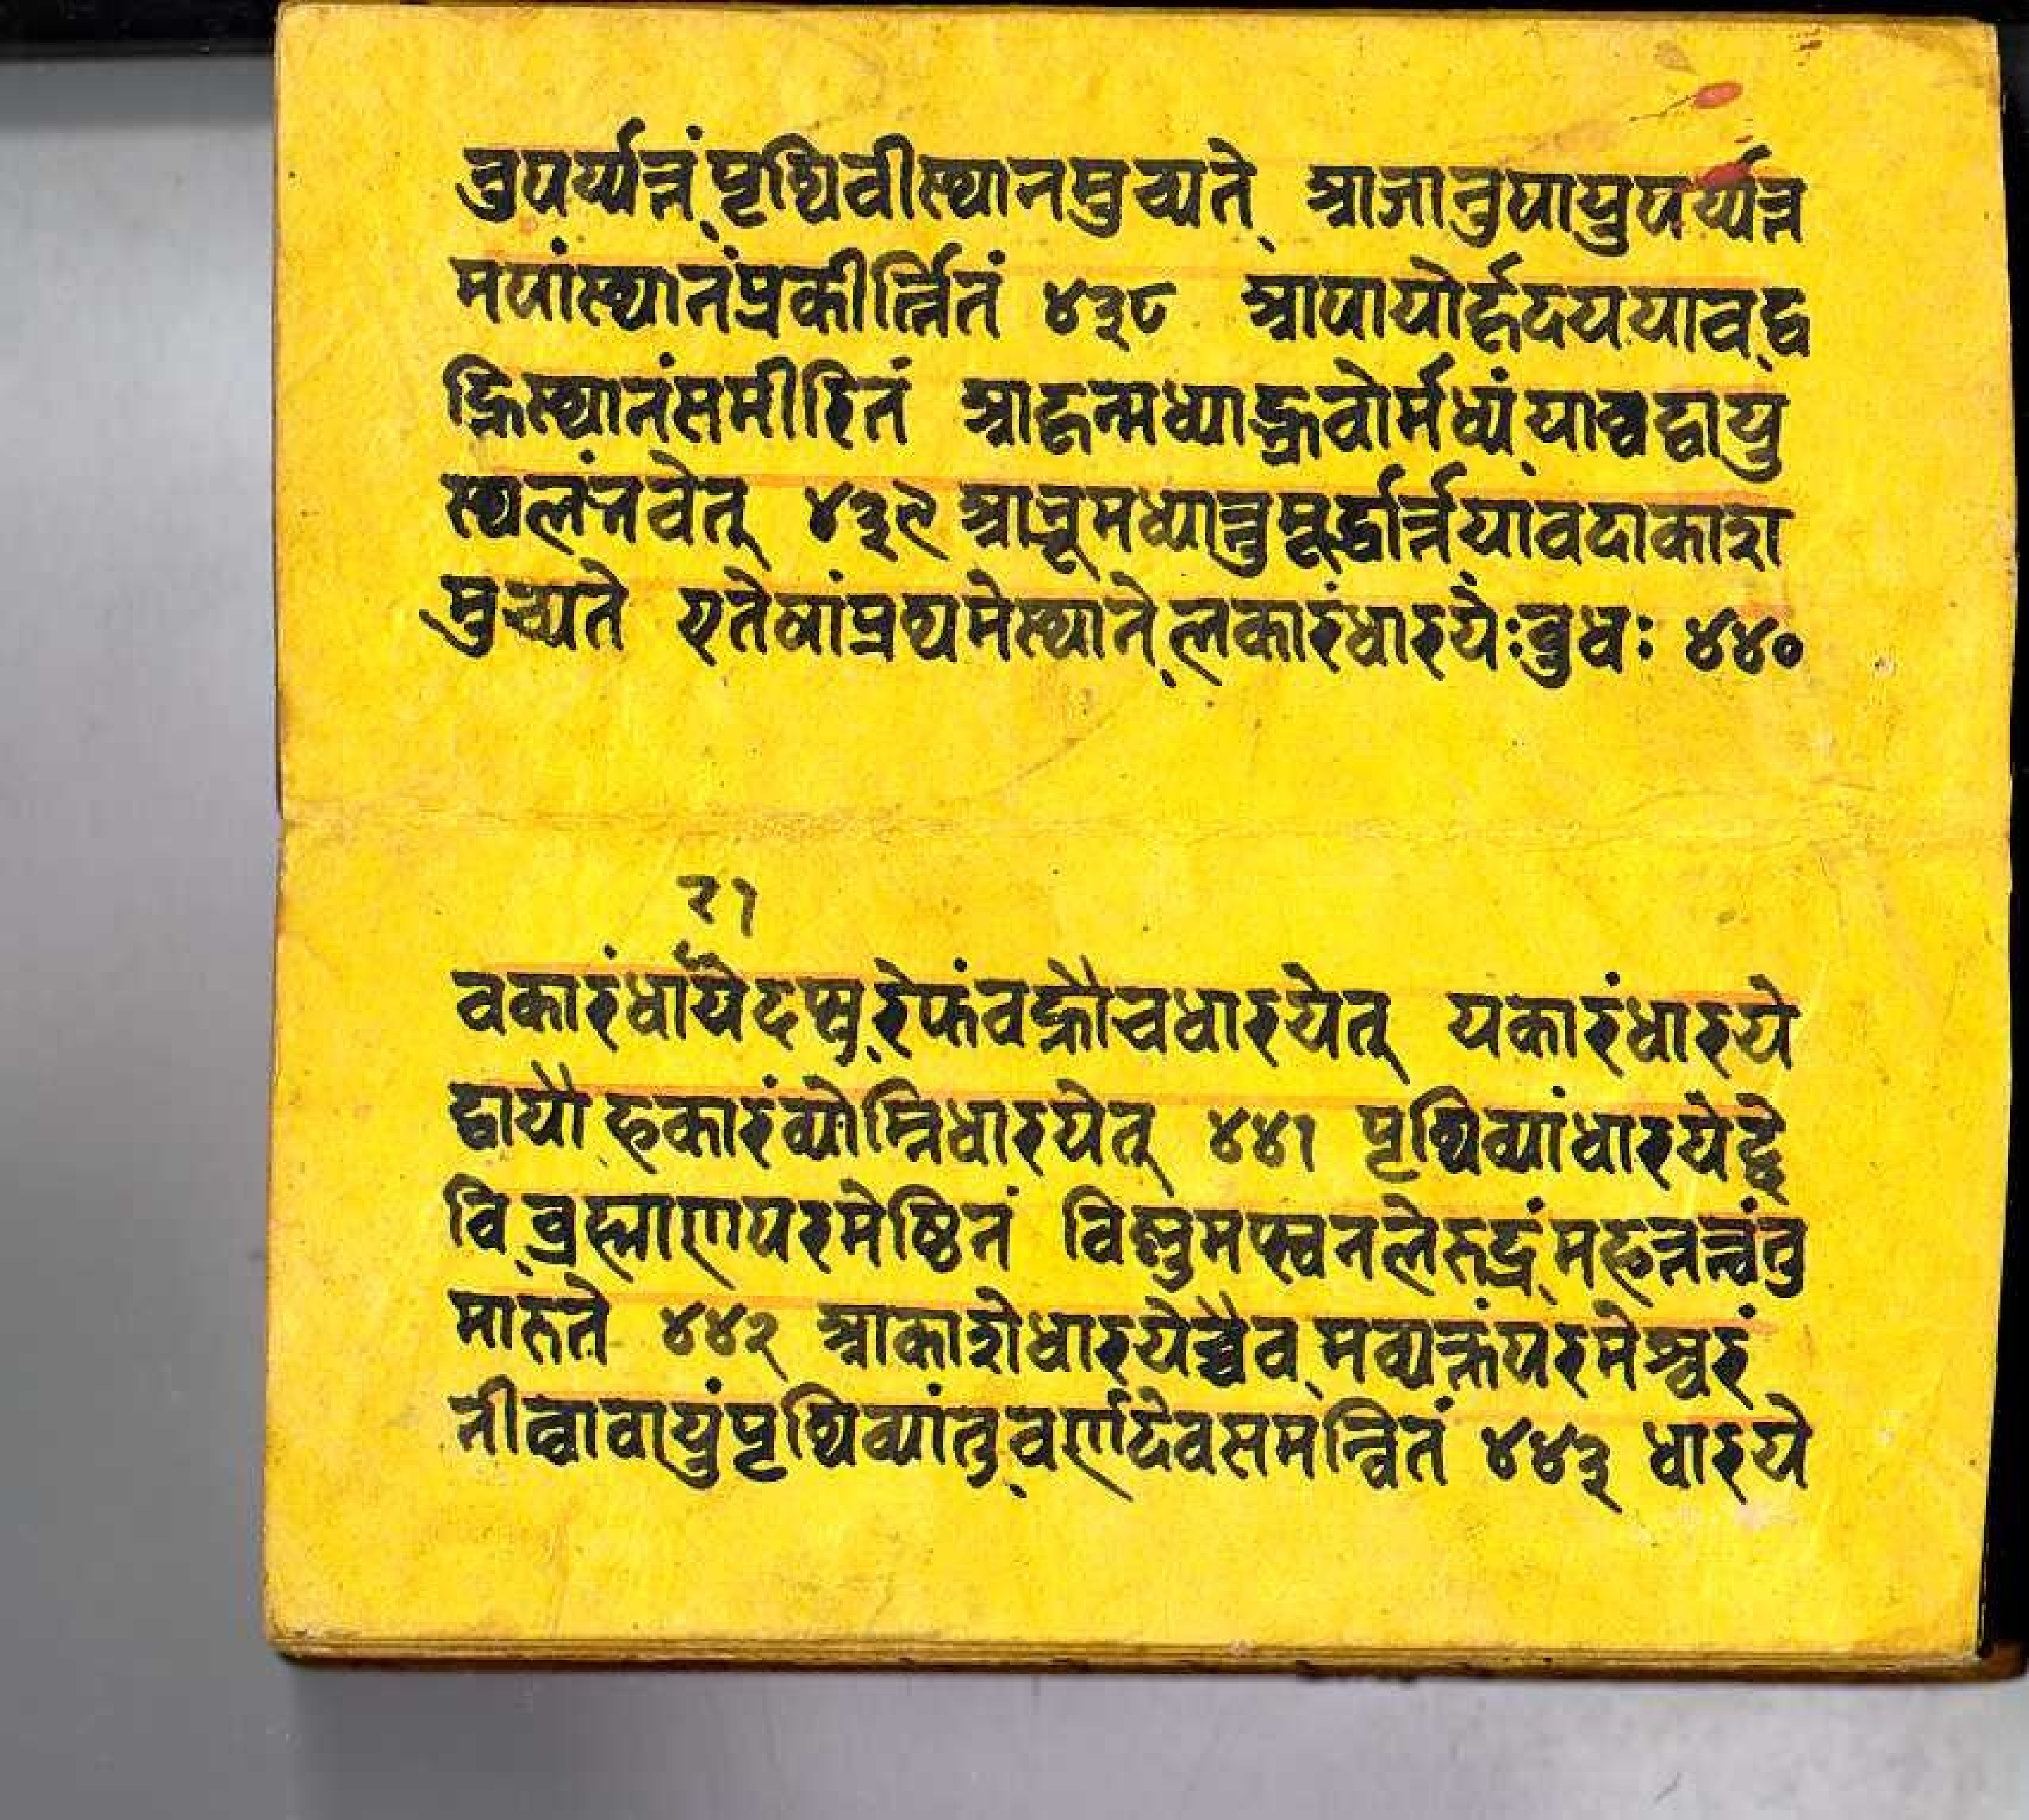 नुपर्य्यन्तं पृथिवीस्थानमुच्यते आजानुपायुपर्य्यन्त
मपांस्थानंप्रकीर्त्तितं ४३८ आपायोर्हृदययावद्व
ह्निस्थानंसमीरितं आहृन्मध्याद्भ्रुवोर्मध्यं यावद्वायु
स्थलंभवेत् ४३९ आभ्रूमध्यात्तुमूर्द्धान्तंयावदाकाश
मुच्यते एतेषांप्रथमेस्थाने लकारंधारयेःबुधः ४४०
रा
वकारंधार्येदप्सु रेफंवह्नौचधारयेत् यकारंधारये
द्वायौ हकारंव्योम्निधारयेत् ४४१ पृथिव्यांधारयेद्दे
वि ब्रह्माणपरमेष्ठिनं विष्णुमप्स्वनलेरुद्रं महत्तत्त्वंतु
मारुते ४४२ आकाशेधारयेच्चैव मव्यक्तंपरमेश्वरं
नीत्वावायुंपृथिव्यांतु वर्णदेवसमन्वितं ४४३ धारये